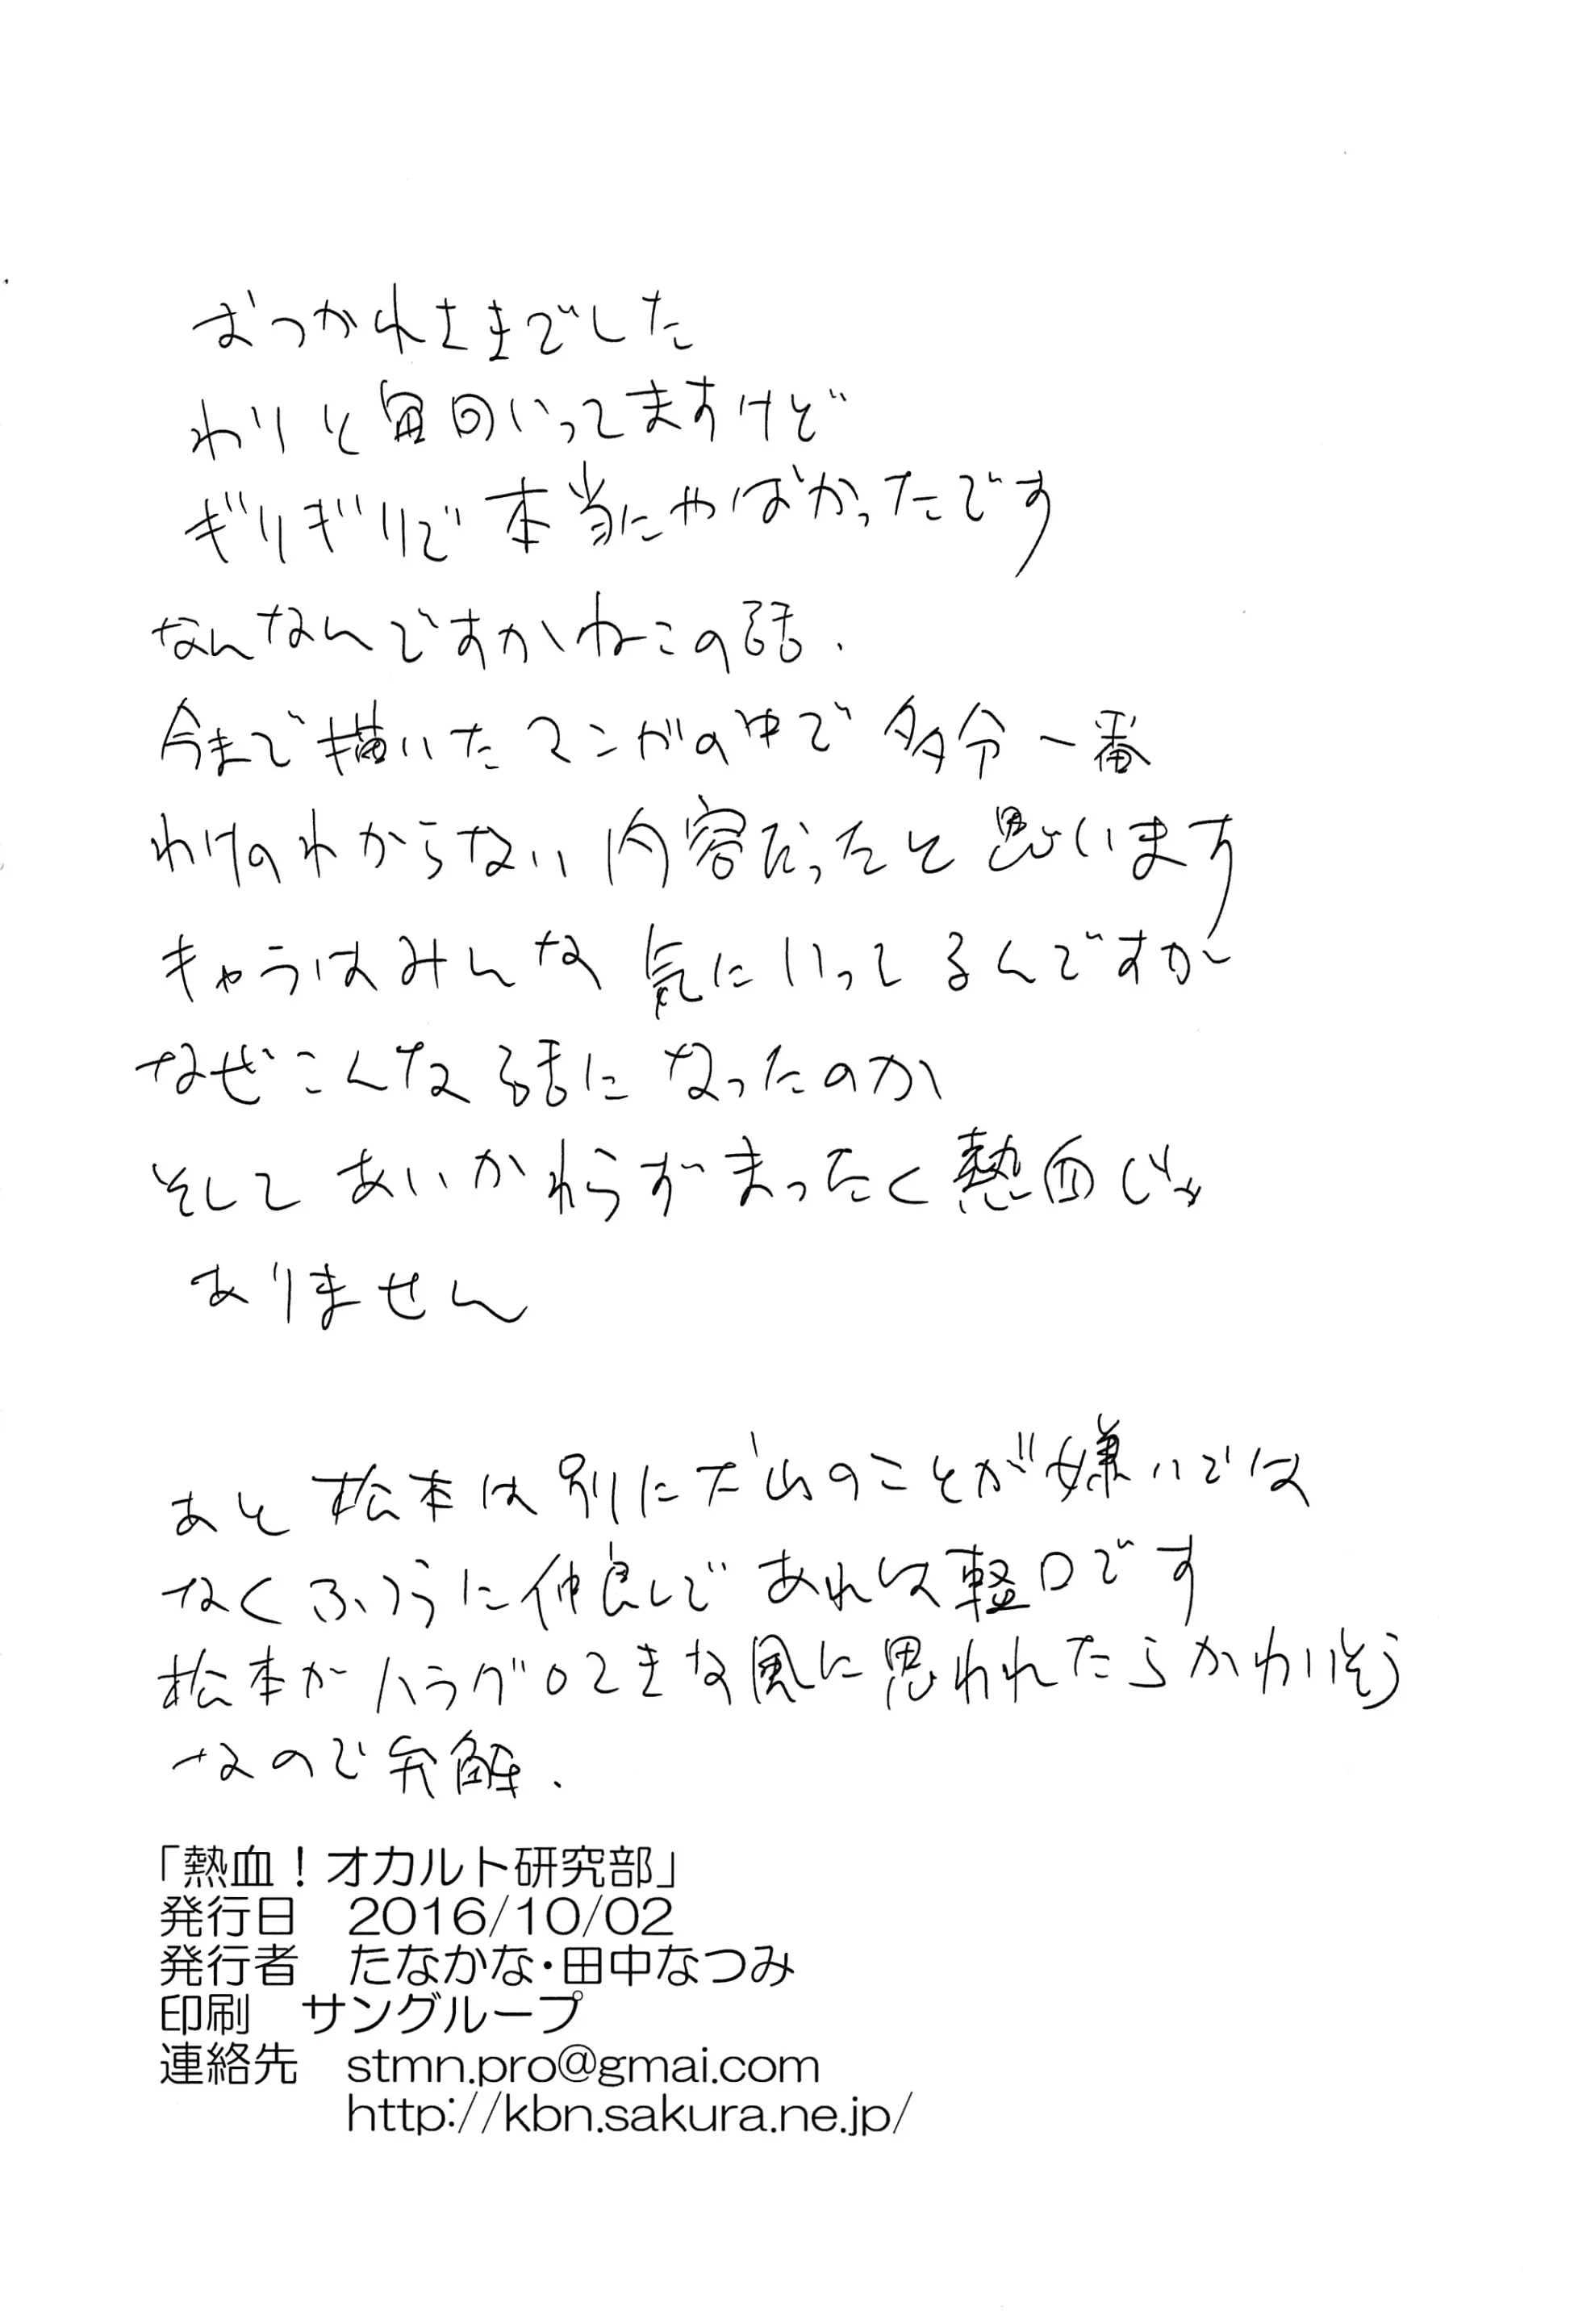 おつかれさまでした
わりと毎回いってますけど
ぎりぎりで本当にやばかったです
なんなんですかねこの話.
今まで描いたマンガの中で多分一番
わけのわからない内容だったと思います
キャラはみんな気にいってるんですが
なぜこんな話になったのか
そしてあいかわらずまったく熱血じゃ
ありません
あと松本は別にのことが嫌いでは
なくふつうに仲良しであれは軽口です
松本がハラグロてきな風に思われたらかわいそう
なので弁解.
「熱血！オカルト研究部」
発行日　2016/10/02
発行者　たなかな・田中なつみ
印刷　サングループ
連絡先　stmn.pro@gmai.com
http://kbn.sakura.ne.jp/